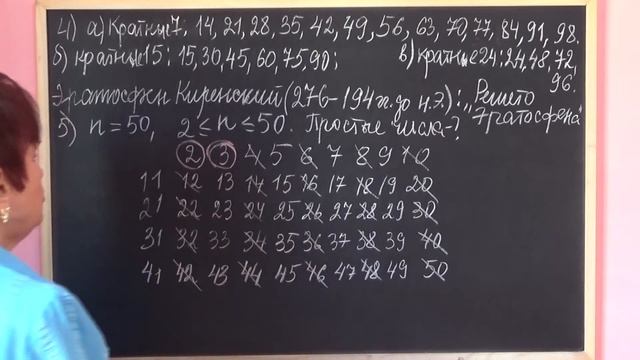 4) а) Кратные 7: 14, 21, 28, 35, 42, 49, 56, 63, 70, 77, 84, 91, 98.
б) кратные 15: 15, 30, 45, 60, 75, 90; в) кратные 24: 24, 48, 72, 96.
Эратосфен Киренский (276-194 гг. до н.э.): „Решето Эратосфена"
5) n = 50, 2 ≤ n ≤ 50. Простые числа-?
2 3 4 5 6 7 8 9 10
11 12 13 14 15 16 17 18 19 20
21 22 23 24 25 26 27 28 29 30
31 32 33 34 35 36 37 38 39 40
41 42 43 44 45 46 47 48 49 50